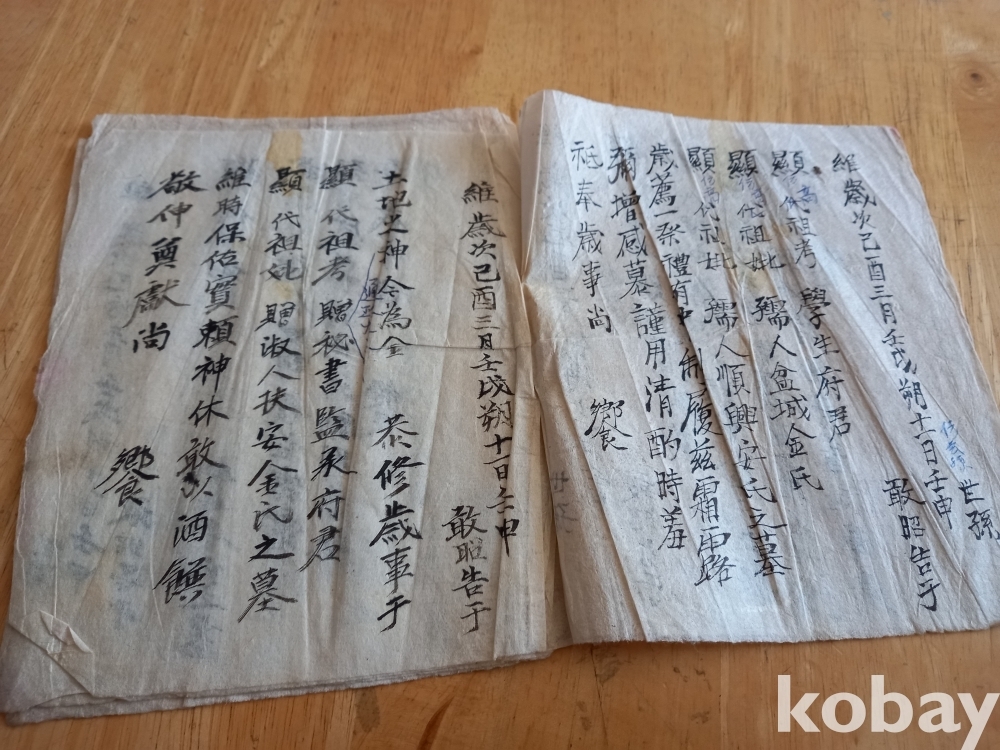 維歲次己酉三月壬戌朔十一日壬申
世孫
敢昭告于
顯 代祖考 學生府君
高
顯 代祖妣 孺人盆城金氏
顯 代祖妣 孺人順興安氏之墓
歲薦一祭禮有中制履兹霜雨路
彌增感慕謹用清酌時羞
祗奉歲事尚
饗
維歲次己酉三月壬戌朔十一日壬申
敢昭告于
土地之神 今為 恭修歲事于
顯 代祖考 贈秘書監丞府君
顯 代祖妣 贈淑人扶安金氏之墓
維時保佑實賴神休敢以酒饌
敬伸奠獻尚
饗
kobay